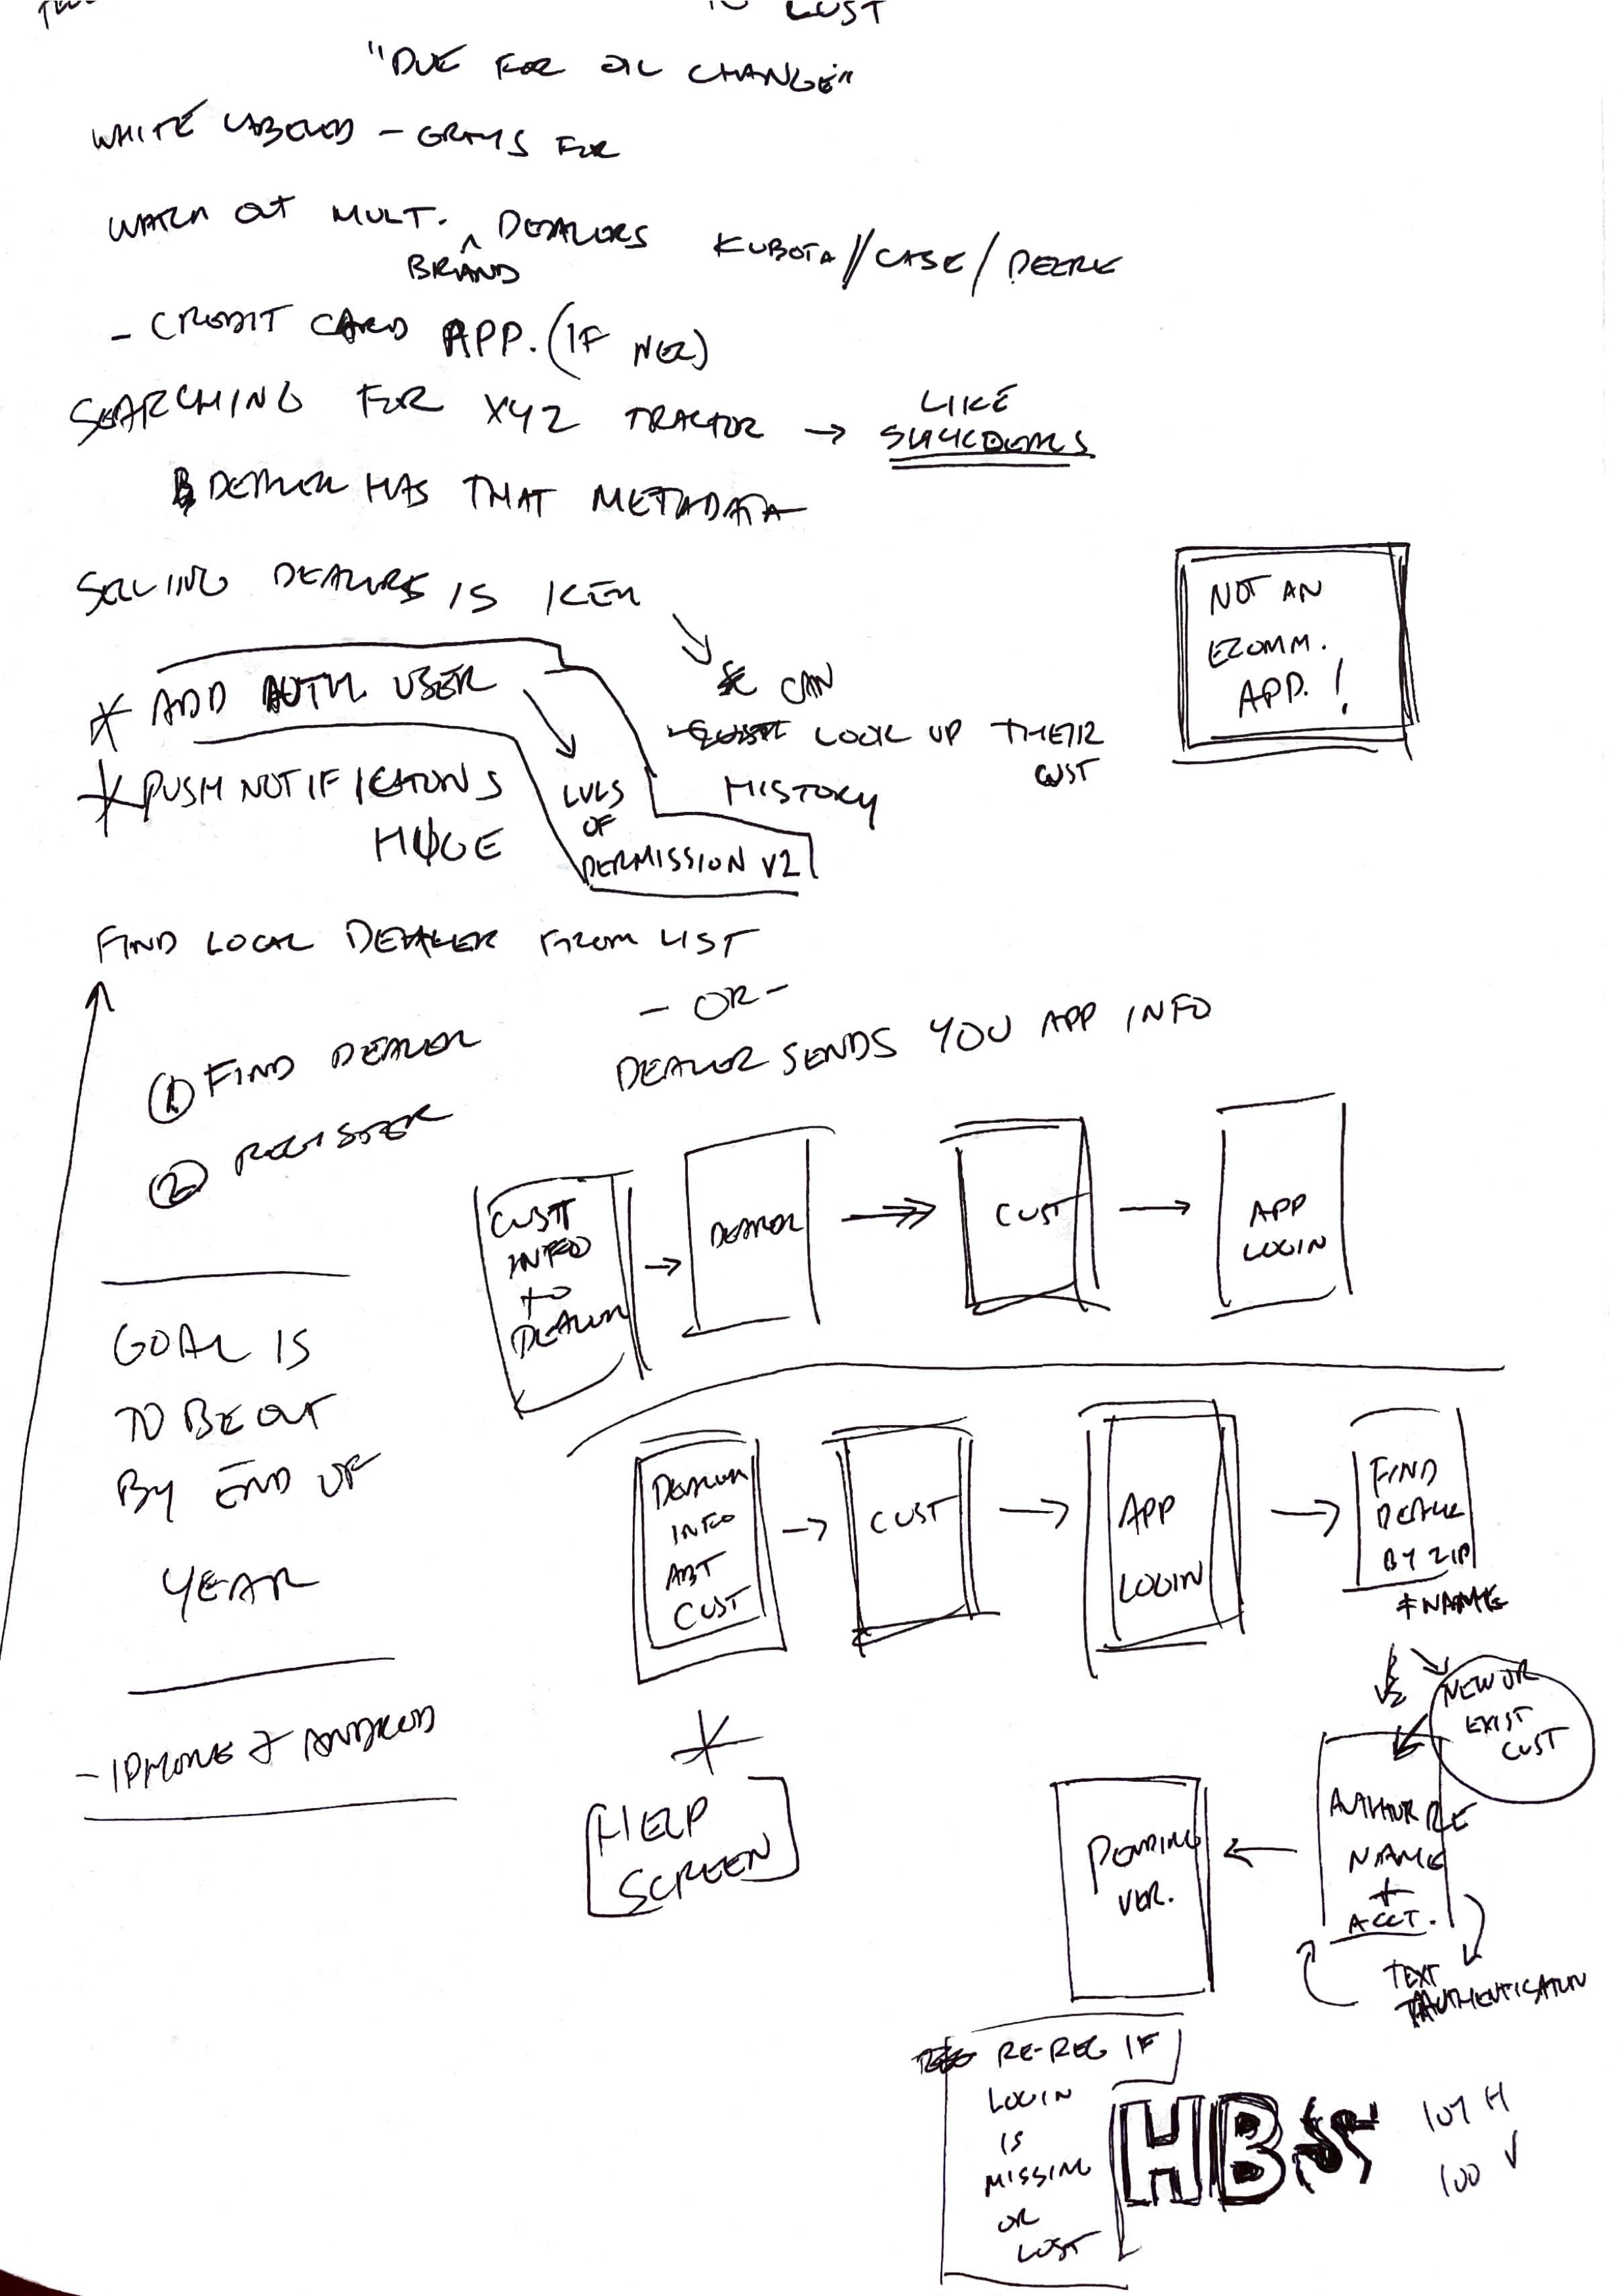 TO CUST
"DUE FOR OIL CHANGE"
WHITE LABELED - GRAYS FOR
WATCH OUT MULT. DEALERS KUBOTA//CASE/DEERE
^ BRAND
- CREDIT CARD APP. (IF NEC)
SEARCHING FOR XYZ TRACTOR → LIKE
SLICKDEALS
DEALER HAS THAT METADATA
SELLING DEALERS IS KEY
NOT AN
ECOMM.
APP. !
* ADD AUTH. USER
CAN
LOOK UP THEIR
CUST
HISTORY
* PUSH NOTIFICATIONS
HUGE
LVLS
OF
PERMISSION V2
FIND LOCAL DEALER FROM LIST
- OR -
DEALER SENDS YOU APP INFO
① FIND DEALER
② REGISTER
CUST
INFO
TO
DEALER
→ DEALER
→ CUST
→ APP
LOGIN
GOAL IS
TO BE OUT
BY END OF
YEAR
DEALER
INFO
ABT
CUST
→ CUST
→ APP
LOGIN
→ FIND
DEALER
BY ZIP
+ NAME
NEW OR
EXIST
CUST
- IPHONE & ANDROID
*
HELP
SCREEN
AUTHORIZE
NAME
+
ACCT.
TEXT
AUTHENTICATION
← PENDING
VER.
RE-REG IF
LOGIN
IS
MISSING
OR
LOST
HBS
107 H
100 V